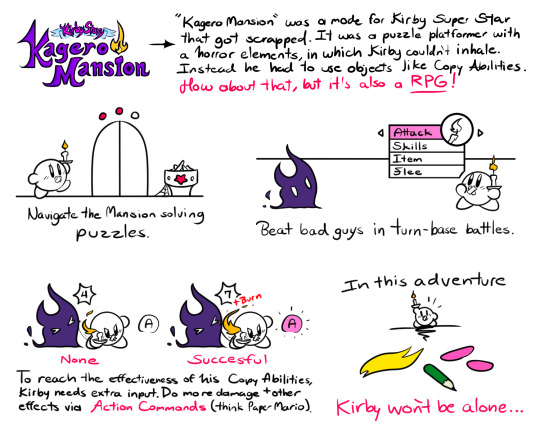 Kirby Star
Kagero
Mansion
"Kagero Mansion" was a mode for Kirby Super Star
that got scrapped. It was a puzzle platformer with
a horror elements, in which Kirby couldn't inhale.
Instead he had to use objects like Copy Abilities.
How about that, but it's also a RPG!
Attack
Skills
Item
Flee
Navigate the Mansion solving
puzzles.
Beat bad guys in turn-base battles.
4
A
None
7
+Burn
A
Succesful
To reach the effectiveness of his Copy Abilities,
Kirby needs extra input. Do more damage + other
effects via Action Commands (think Paper Mario).
In this adventure
Kirby won't be alone...